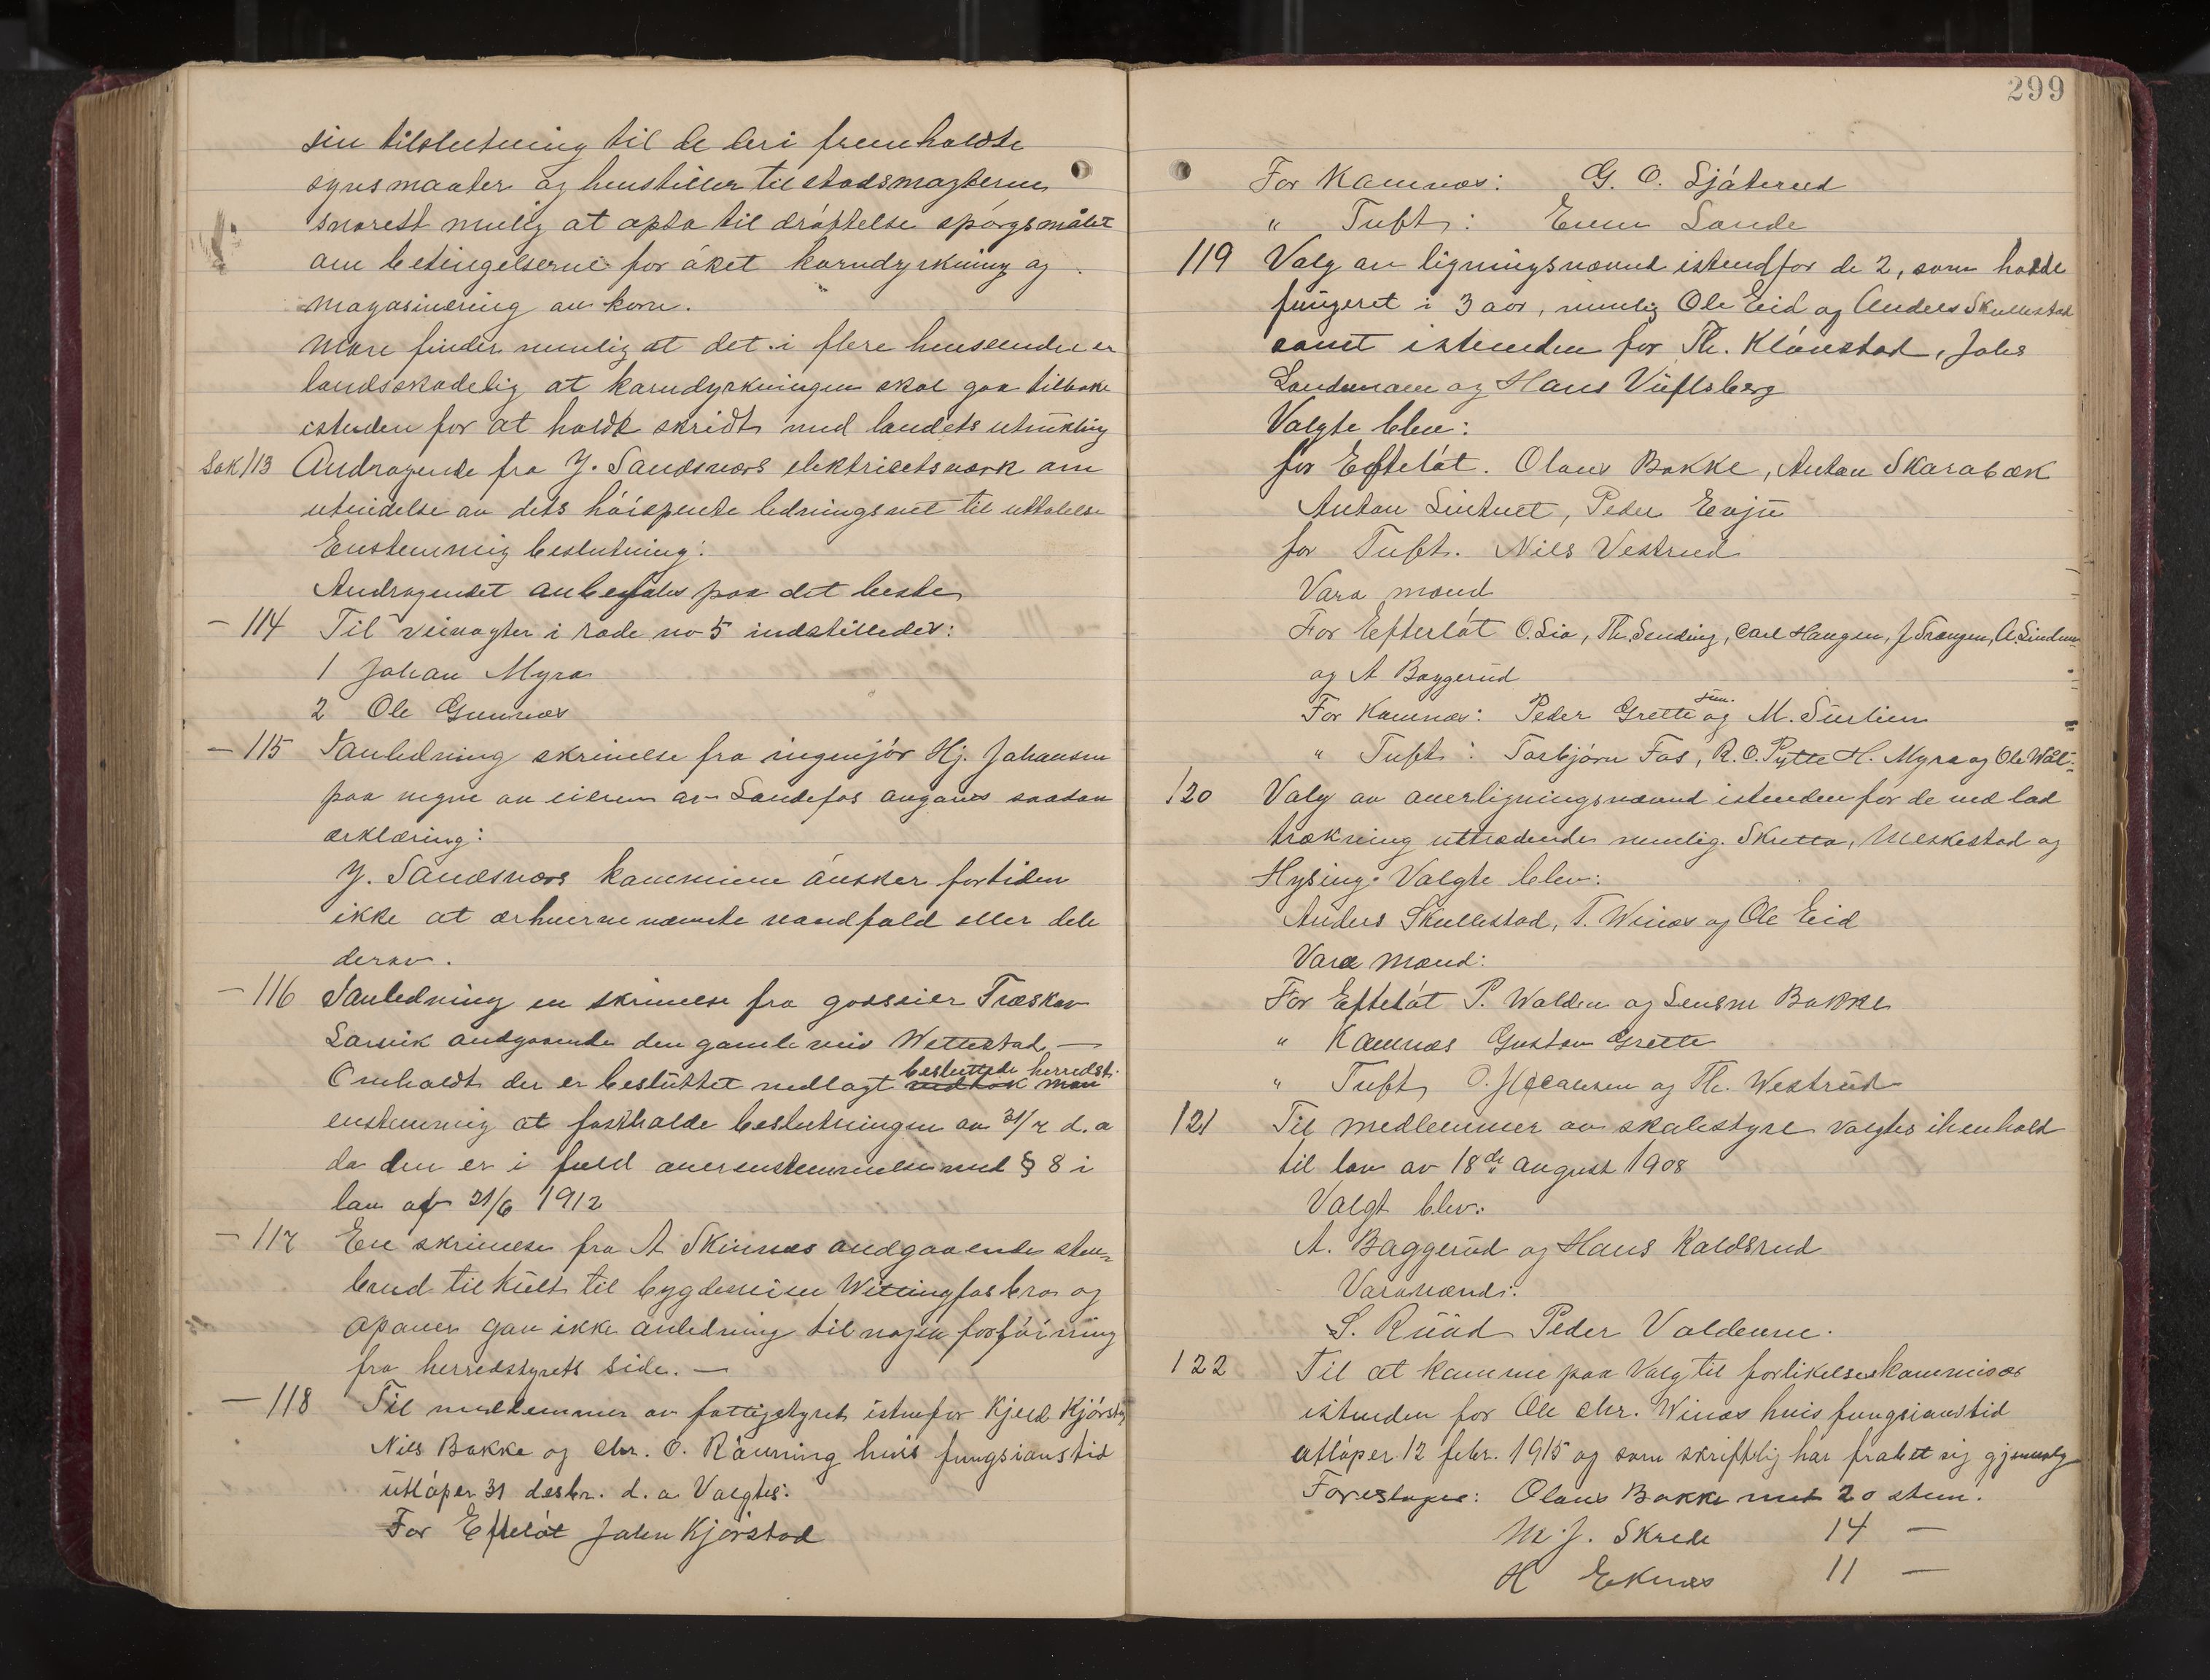 sin tilslutning til de deri fremholdte
synsmaater og henstiller til stadsmagterne
snarest mulig at opta til dröftelse spörgsmålet
om betingelserne for öket korndyrkning og
magasinering av korn.
Man finder nemlig at det i flere henseender er
landsskadelig at korndyrkningen skal gaa tilbake
isteden for at holdt skridt med landets utvikling
Sak 113 Andragende fra Y. Sandsværs elektricitetsverk om
utvidelse av dets höispente ledningsnet til uttalelse
Enstemmig beslutning:
Andragendet anbefales paa det beste
- 114 Til veivogter i rode no 5 indstilledes:
1 Johan Myra
2 Ole Gunnes
- 115 I anledning skrivelse fra ingenjör Hj. Johansen
paa vegne av eieren av Landefos avgaves saadan
erklæring:
Y. Sandsværs kommune önsker for tiden
ikke at erhverve nævnte vandfald eller dele
derav.
- 116 I anledning en skrivelse fra godseier Træskov
Larvik angaaende den gamle vei Wettestad —
Omholdt der er besluttet nedlagt vedtok man besluttede herredsst.
enstemmig at fastholde beslutningen av 31/7 d.a
da den er i fuld overensstemmelse med § 8 i
lov af 21/6 1912
- 117 En skrivelse fra A Skinnes angaaende sten-
brud til kult til bygdeveien Wittingfos bro og
opover gav ikke anledning til nogen forföining
fra herredstyrets side. —
- 118 Til medlemmer av fattigstyret istedfor Kjeld Kjörstad
Nils Bakke og Chr. O. Rönning hvis fungsionstid
utlöper 31 desbr. d. a. Valgtes:
For Efteløt John Kjörstad
299
For Kamnes: G. O. Sjåterud
" Tuft: Even Sande
119 Valg av ligningsnævnd istedfor de 2, som hadde
fungeret i 3 aar, nemlig Ole Eid og Anders Skullestad
samt isteden for Th. Klönstad, Johs
Landsmann og Hans Vüflsberg
Valgte blev:
for Efteløt. Olaus Bakke, Anton Skarabæk
Anton Lintvet, Peder Evju
for Tuft. Nils Vestrud
Vara mænd
For Efteröt O. Lia, Th. Sending, Carl Haugen, J Trangen, A. Lindem
og A Baggerud
For Kamnes: Peder Grette sen. og M. Surlien
" Tuft: Torbjörn Fos, R. O. Pytte H. Myra og Ole Wål-
120 Valg av overligningsnævnd isteden for de ved lod
trækning uttrædende nemlig. Skutta, Meskestad og
Hysing. Valgte blev:
Anders Skullestad, T. Winæs og Ole Eid
Vara mænd:
For Efteløt P. Walden og Lensm Bakke
" Kamnes Gustav Grette
" Tuft O. Johansen og Th. Westrud
121 Til medlemmer av skolestyre valgtes i henhold
til lov av 18de august 1908
Valgt blev:
A. Baggerud og Hans Kaldsrud
Varamænd:
S. Ruud Peder Valdenne.
122 Til at komme paa Valg til forlikelseskommisær
isteden for Ole Chr. Winæs hvis fungsionstid
utlöper 12 febr. 1915 og som skriftlig har frabet sig gjenvalg
Foreslages: Olaus Bakke med 20 stem.
M. J. Skrede 14 —
H Eknes 11 —